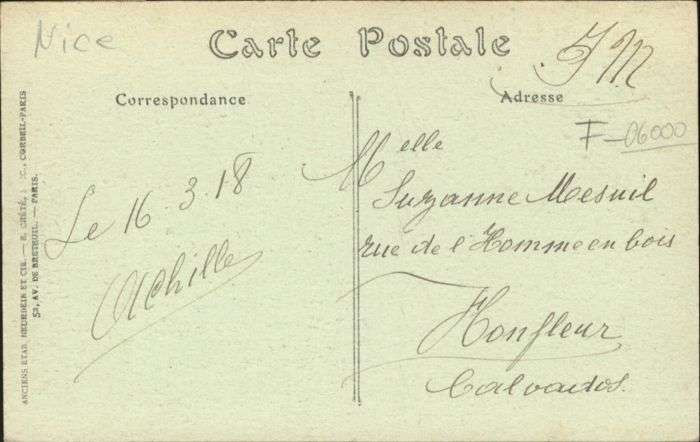 Nice
Carte Postale
F M
Correspondance
Adresse
F-06000
Le 16 3.18
Achille
Melle
Suzanne Mesnil
rue de l'Homme en bois
Honfleur
Calvados.
ANCIENS ETAB. NEURDEIN ET CIE. — E. CRÉTÉ, CORBEIL-PARIS
52, AV. DE BRETEUIL. — PARIS.